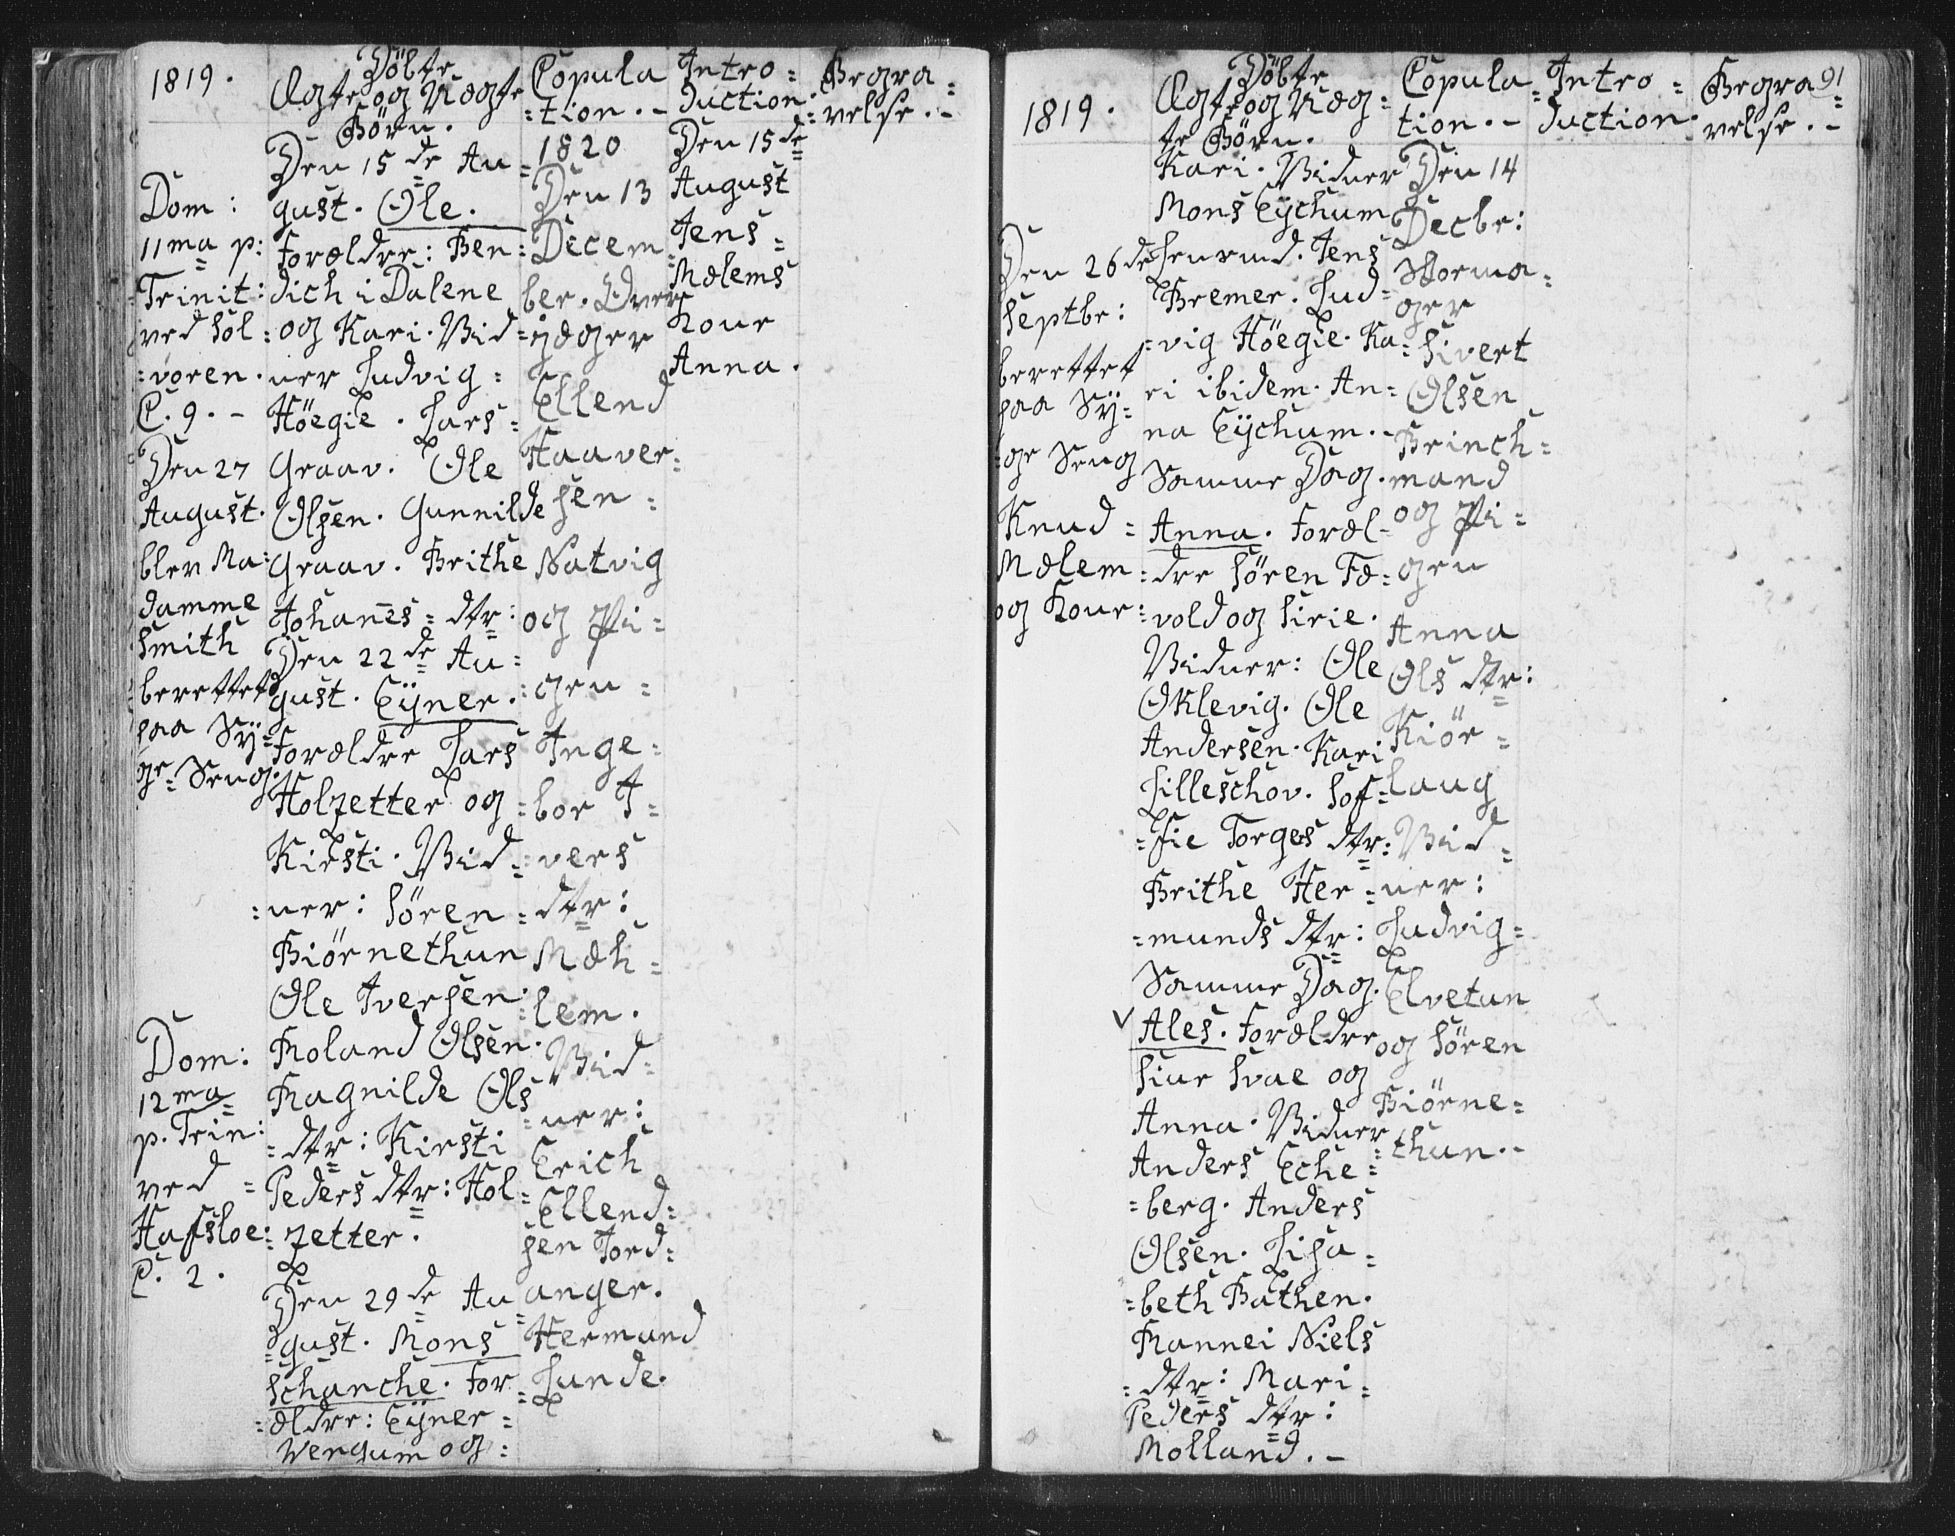 1819.
Döbte
Ægte og Uægte
Börn.
Copula
=tion.-
Intro=
duction.
Begra=
=velse.-
Dom:
11ma p:
Trinit:
ved Sol=
=voren.
C. 9.-
Den 27
August.
blev Ma=
damme
Smith
berettet
paa Sÿ=
ge=Seng.
Dom:
12ma
p. Trin:
ved =
Hafsloe:
C. 2.
Den 15de Au=
gust. Ole.
Forældre: Ben=
dich i Dalene
og Kari. Vid=
ner Ludvig=
Höegie. Lars=
Graav. Ole
Olsen. Gunnilde
Graav. Brithe
Johanes=dtr:
Den 22de Au=
gust. Eÿner.
Forældre Lars
Holzetter og
Kirsti. Vid=
=ner: Sören
Biörnethun
Ole Iversen.
Roland Olsen.
Ragnilde Ols
=dtr: Kirsti
Peders dtr: Hol=
zetter.
Den 29de Au=
=gust. Mons
Schanche. For
=ældre: Eÿner=
Vengum og=
1820
Den 13
Decem=
ber. Over
jæger
Ellend
Haaver=
sen=
Natvig
og Pi=
=gen=
Inge=
=bor I=
=vers
=dtr:
Mæh=
=lem.
Vid=
=ner:
Erich
=Ellend=
sen Jord=
anger.
Hermund
=Lunde.
Den 15de
August
Jens=
Mælems
Kone
Anna.
1819.
Döbte
Ægte og Uæg=
te Börn.
Copula=
tion.-
Intro=
duction.
Begra=
velse.-
91
Den 26de
Septbr:
berettet
paa Sÿ=
=ge Seng
Knud=
Mælem=
og Kone=
Kari. Vidner
Mons Eÿchum
Jens
Bremer. Lud=
=vig Höegie. Ka=
ri ibidem. An=
na Eÿchum.-
Samme Dag.
Anna. Foræl=
dre Sören Fæ=
vold og Sirie.
Vidner: Ole
Oklevig. Ole
Andersen. Kari
Lilleschov. Sof=
=fie Torges dtr:
Brithe Her=
=munds dtr:
Samme Dag.
Ales. Forældre
Siur Svae og
Anna. Vidner
Anders Eche=
=berg. Anders
Olsen. Lisa=
=beth Bathen.
Rannei Niels
=dtr: Mari=
Peders dtr:
Molland.-
Den 14
Decbr:
Storma=
ger
Sivert
Olsen
Brinch=
mand
og Pi=
gen
Anna
Ols dtr:
Kiör=
laug
Vid=
ner:
Ludvig=
Elvetun
og Sören
Biörne=
=thun.-